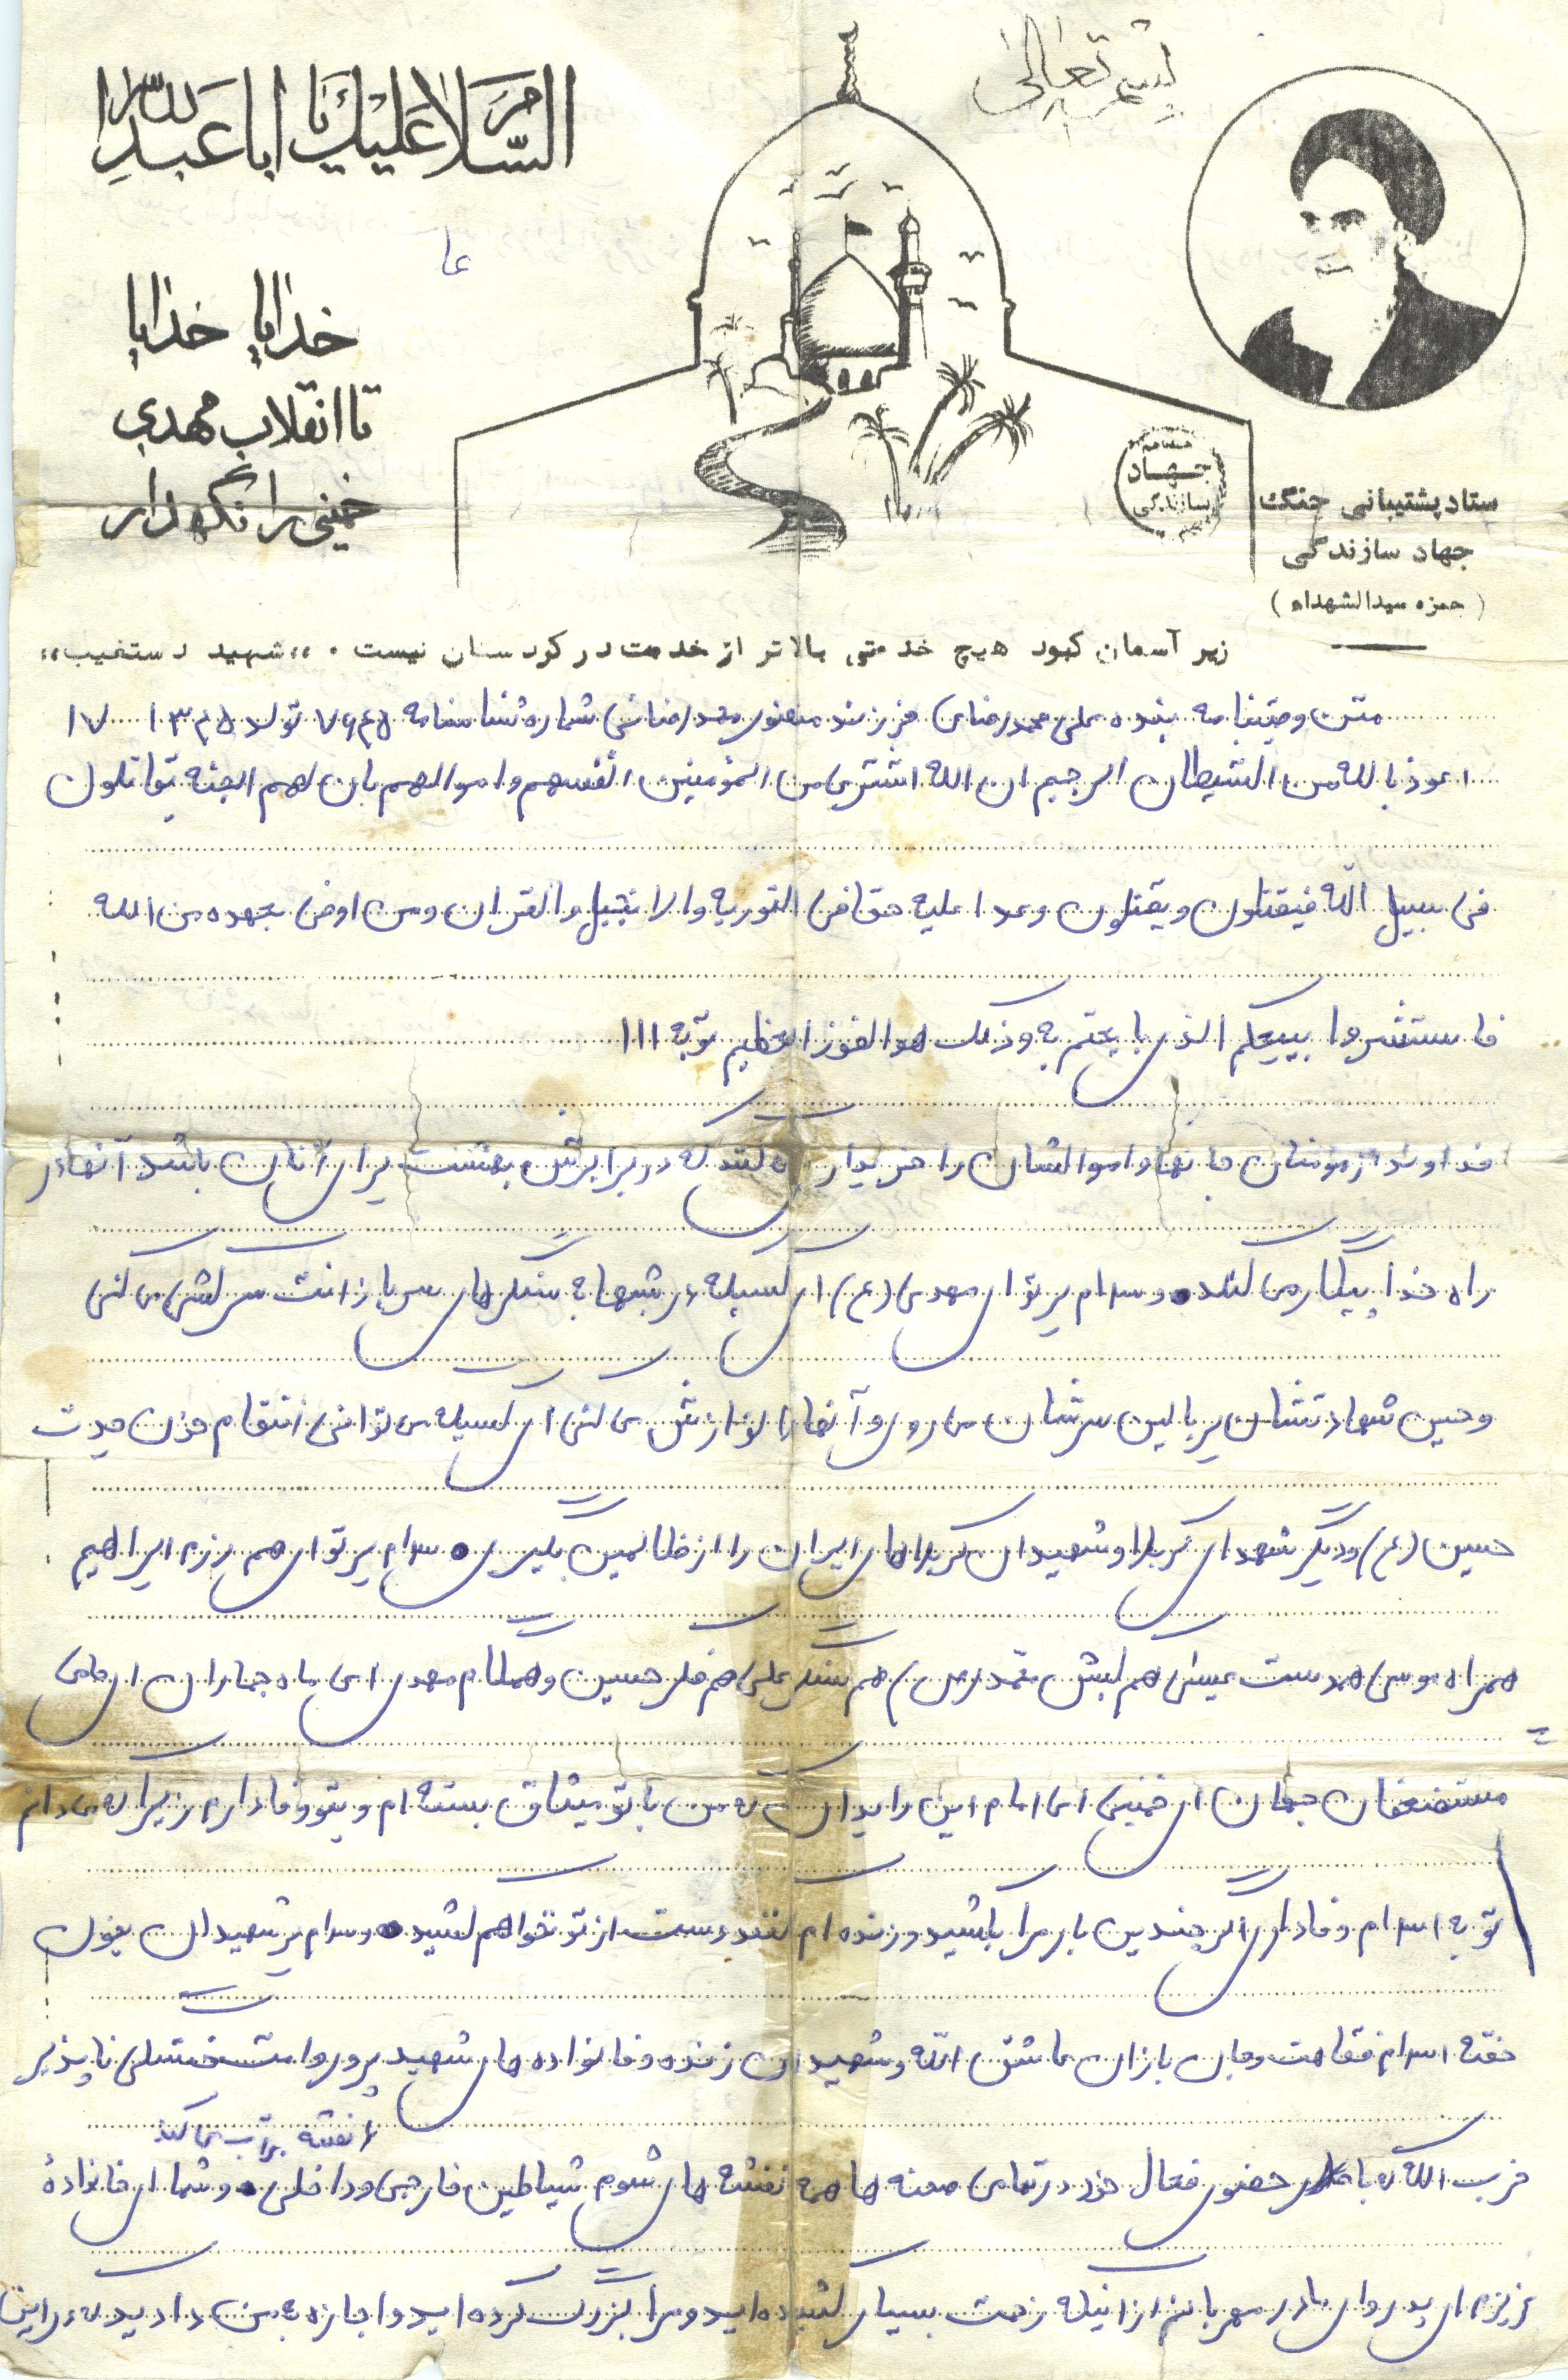 بسمه تعالی
السلام علیک یا اباعبدالله
خدایا خدایا
تا انقلاب مهدی
خمینی را نگهدار
جهاد
سازندگی
ستاد پشتیبانی جنگ
جهاد سازندگی
(حمزه سیدالشهداء)
زیر آسمان کبود هیچ خدمتی بالاتر از خدمت در کردستان نیست . ،،شهید دستغیب،،
متن وصیتنامه بنده علی محمدرضائی فرزند محمدرضائی شماره شناسنامه ۷۶۴۵ تولد ۱۳۴۵ ۱۷
اعوذ بالله من الشیطان الرجیم ان الله اشتری من المؤمنین انفسهم و اموالهم بان لهم الجنه یقاتلون
فی سبیل الله فیقتلون و یقتلون وعدا علیه حقا فی التوریه والانجیل والقران و من اوفی بعهده من الله
فاستبشروا ببیعکم الذی بایعتم به و ذلک هوالفوز العظیم توبه ۱۱۱
خداوند از مؤمنان جانها و اموالشان را خریداری کند که در برابرش بهشت برای آنان باشد آنها در
راه خدا پیکار می کنند و سلام بر تو ای مهدی (عج) ای کسیکه در شبها به سنگرهای سربازانت سرکشی می کنی
و حین شهادتشان بر بالین سرشان می روی و آنها را نوازش می کنی ای کسیکه می توانی انتقام خون جدت
حسین (ع) و دیگر شهدای کربلا و شهیدان کربلاهای ایران را از ظالمین بگیری و سلام بر تو ای هم رزم ابراهیم
همراه موسی همدست عیسی هم کیش محمد (ص) هم سنگر علی هم فکر حسین و همگام مهدی ای ماه جماران ای حامی
مستضعفان جهان ای خمینی ای امام این را بدان که من با تو میثاق بسته ام و بتو وفادارم زیرا که می دانم
تو به اسلام وفاداری اگر چندین بار مرا بکشند و زنده ام کنند دست از تو نخواهم کشید و سلام بر شهیدان بخون
خفته اسلام فقاهت و جان بازان عاشق الله و شهیدان زنده و خانواده های شهید پرور و امت خستگی ناپذیر
نقشه بر آب می کند
حزب الله که با حضور فعال خود در تمامی صحنه ها همه نقشه های شوم شیاطین خارجی و داخلی و شما ای خانوادهٔ
عزیزم ای پدر و ای مادر مهربانم از اینکه زحمت بسیار کشیده اید و مرا بزرگ کرده اید و اجازه به من دادید که در این